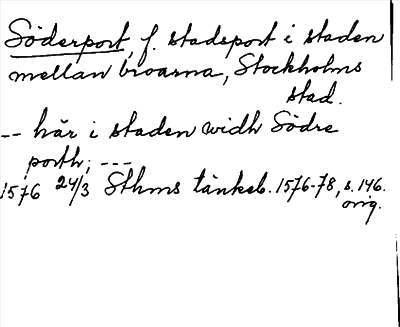 Söderport, f. stadsport i staden
mellan broarna, Stockholms
stad.
-- här i staden widh Södre
porth; ---
1576 24/3 Sthms tänkeb. 1576-78, s. 146.
orig.